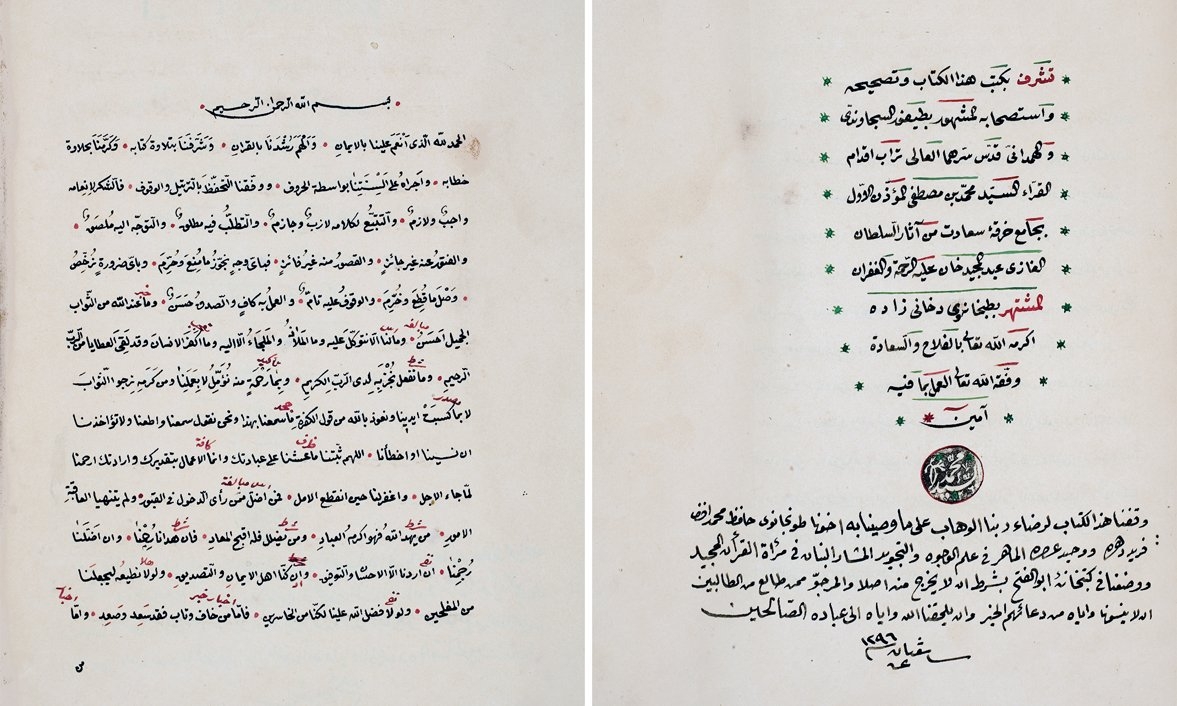 بسم الله الرحمن الرحيم
الحمد لله الذى اَنْعَم علينا بالايمان • وَاَلْهَمَ رُشْدَنَا بالقران • وَشَرَّفَنَا بتلاوة كتابه • وَكَرَّمَنَا بحلاوة
خطابه • واجراه على اَلْسِنَتِنَا بواسطة الحروف • ووفقنا التحفّظ بالترتيل والوقوف • فالشكر لانعامه
واجبٌ ولازمٌ • والتتبّع لكلامه لازبٌ وجازمٌ • والتطلّب فيه مطلوبٌ • والتوجّه اليه ملصقٌ •
والفتور عنه غير جائزٍ • والقصور منه غير فائزٍ • فباى وجهٍ يجوز ما مُنِعَ وحُرِّمَ • وباى ضرورة نُرَخِّصُ
• وَصْلَ ما قُطِعَ وخُرِّمَ • والوقوف عليه تامٌ • والعمل به كافٍ والصدق حَسَنٌ • وما عند الله من الثواب
خبر
الجميل احسنُ • وما لنا الا نتوكل عليه وما الملأُ والملجاءُ الا اليه وما اكفر الانسان وقد لقى العطايا من الربّ
مبالغه
الرحيم • وما نفعل نُجْزَ به لدى الربّ الكريم • وبما رحمةٍ منه نُؤَمِّلُ لا بعملنا ومن كرمه نرجو الثواب
شرط تأكيد
لا بما كسبتْ ايدينا ونعوذ بالله من قول الكفرة ما سمعنا بهذا ونحن نقول سمعنا واطعنا ولا تؤاخذنا
مصدر جحد
ان نسينا او اخطأنا • اللهم ثبّتنا ما عشنا على عبادتك وانما الاعمال بتقديرك وارادتك ارحمنا
ظرف كافة
لمّا جاء الاجل • واغفر لنا حين انقطع الامل • فمن اضل ممن رأى الدخول فى القبور • ولم يتنهيا العاقبة
الامور • من يهد الله فهو اكرم العباد • ومن يضلل فلا اقبح المعاد • فان هدانا نجِنْا • وان اضلّنا
شرط شرط شرط
رجمنا • ان اردنا الا الاحسان والتوفيق • وان كنّا اهل الايمان والتصديق • ولولا نطيعه ليجعلنا
نفى هلا
من المفلحين • ولولا فضل الله علينا لكنّا من الخاسرين • فامّا من خاف وتاب فقد سَعِد وصَعِد • وامّا
نفى اخبار خبر اخبار
من
تشرف بكتب هذا الكتاب وتصحيحه
واستصحابه المشهور بطيفور السجاوندى
والهمدانى قدّس سرهما العالى تراب اقدام
القراء السيّد محمد بن مصطفى المؤذن الاول
بجامع خرقۀ سعادت من آثار السلطان
الغازى عبد المجيد خان عليه الرحمة والغفران
المشتهر بطبخانوى دخانى زاده
اكرمه الله تعالى بالفلاح والسعادة
وفّقه الله تعالى العمل بما فيه
آمين
وقفنا هذا الكتاب لرضاء ربنا الوهاب على ما وصينا به اخونا طوبخانوى حافظ محمد افندى
فريد دهره ووحيد عصره الماهر فى علم الوجوه والتجويد المشار البنان فى مرأة القرآن المجيد
ووضعنا فى كتبخانۀ ابو الفتح بشرط ان لا يخرج منه اصلا والمرجو ممن طالع من الطالبين
ان لا ينسونا واياه من دعائهم الخير وان يلحقنا الله واياه الى عباده الصالحين
١٢٩٦